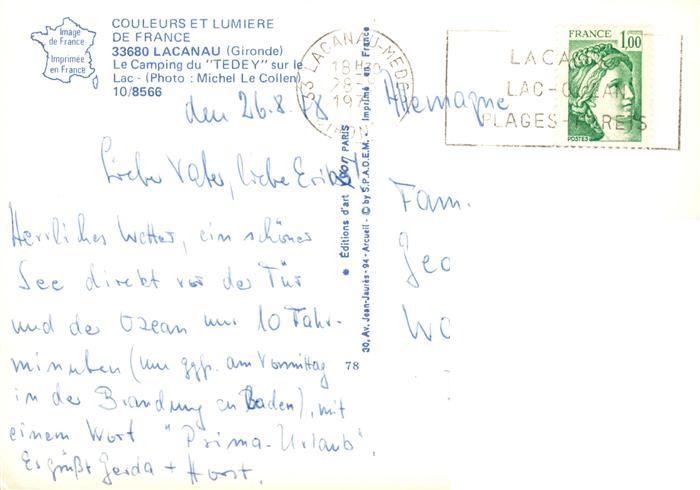 Image
de France
Imprimée
en France
COULEURS ET LUMIERE
DE FRANCE
33680 LACANAU (Gironde)
Le Camping du "TEDEY" sur le
Lac - (Photo : Michel Le Collen)
10/8566
33 LACANAU-MEDOC
18 H
GIRONDE
LACANAU
LAC-OCEAN
PLAGES-FORETS
FRANCE
1,00
POSTES
den 26.8.78
Allemagne
Liebe Vater, liebe Erika
Herrliches Wetter, ein schöner
See direkt vor der Tür
und der Ozean nur 10 Fahr-
minuten (um ggf. am Vormittag
in der Brandung zu Baden), mit
einem Wort "Prima-Urlaub".
Es grüßt Gerda + Horst.
Fam.
Geo
Wo
● Éditions d'art yvon PARIS
30, Av. Jean-Jaurès - 94 - Arcueil - © by S.P.A.D.E.M. - Imprimé en France
78